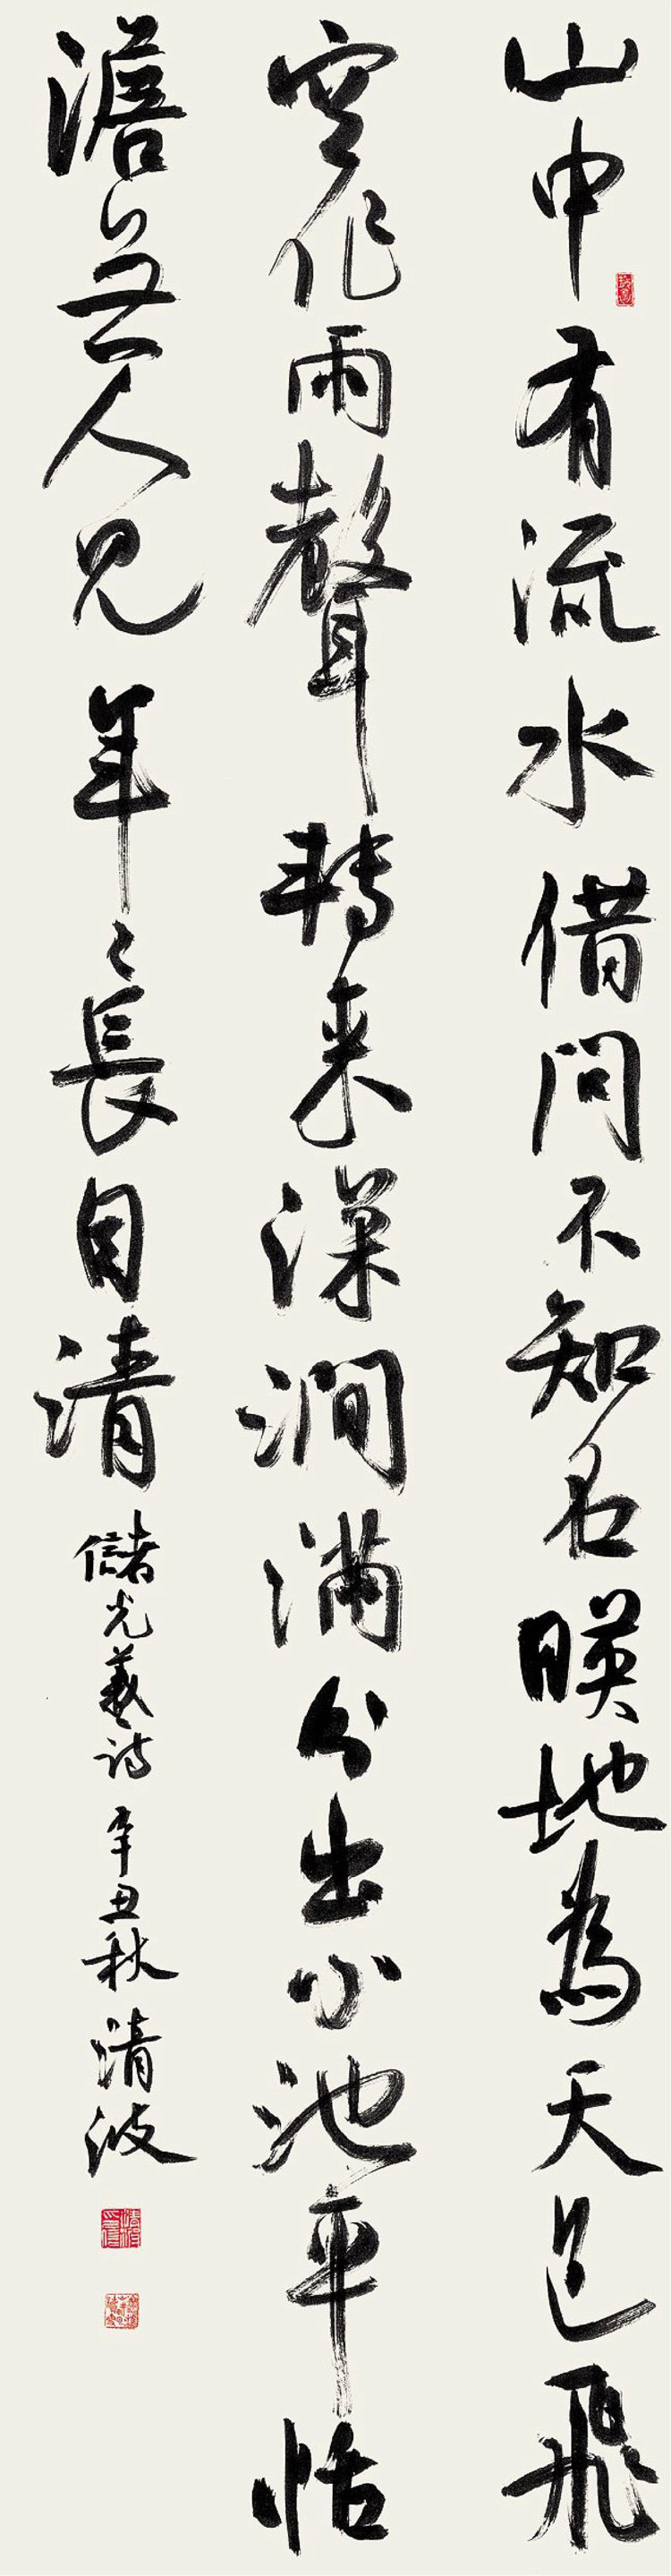 山中有流水借问不知名暎地為天色飛
空作雨聲轉来深澗满分出小池平恬
澹無人見年〻長自清儲光羲詩辛丑秋清波